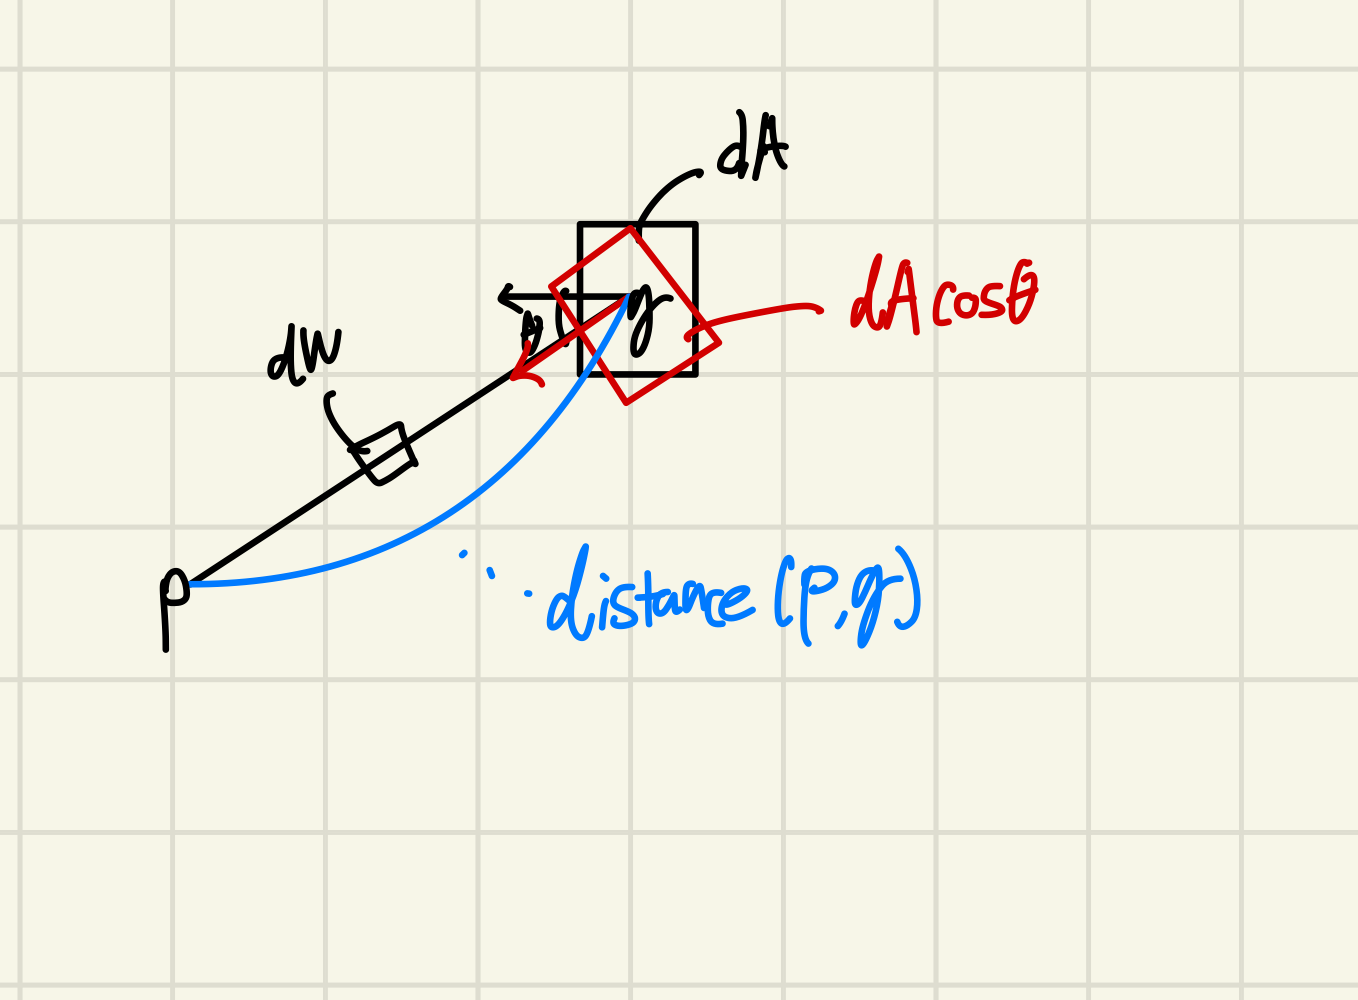 dA
dA cosθ
g
θ
dw
p
distance (p,g)